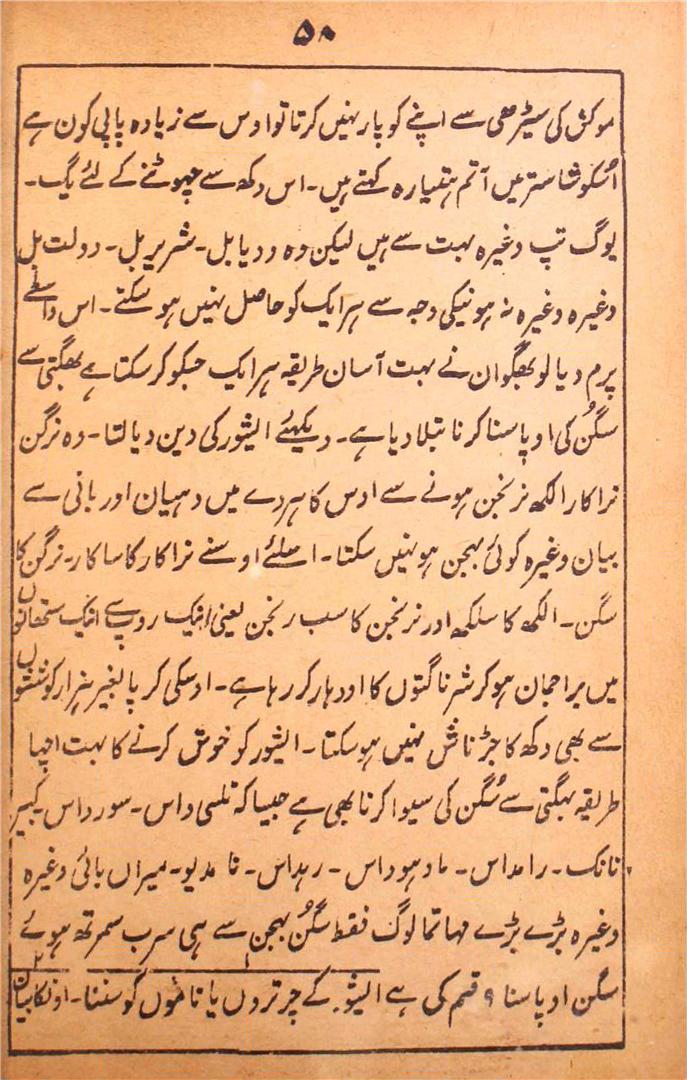 ۵۰
موکش کی سیڑھی سے اپنے کو پار نہیں کرتا تو اوس سے زیادہ پاپی کون ہے
اُسکو شاستر میں آتم ہتیارہ کہتے ہیں۔ اس دکھ سے چھوٹنے کے لئے یگ۔
یوگ تپ وغیرہ بہت سے ہیں لیکن وہ ودیا بل۔ شریر بل۔ دولت بل
وغیرہ وغیرہ نہ ہونیکی وجہ سے ہر ایک کو حاصل نہیں ہو سکتے۔ اس واسطے
پرم دیالو بھگوان نے بہت آسان طریقہ ہر ایک جسکو کر سکتا ہے بھگتی سے
سگُن کی اوپاسنا کرنا بتلا دیا ہے۔ دیکہئے ایشور کی دین دیالتا۔ وہ نرگن
نراکار الکھ نرنجن ہونے سے اوس کا ہردے میں دہیان اور بانی سے
بیان وغیرہ کوئی بہجن ہو نہیں سکتا۔ اسلئے اوسنے نراکار کا ساکار۔ نرگن کا
سگن۔ الکھ کا سلکھ اور نرنجن کا سب رنجن یعنی انیک روپ سے انیک ستھانوں
میں براجمان ہو کر شرناگتوں کا اودہار کر رہا ہے۔ اوسکی کرپا بغیر ہزار کوششوں
سے بھی دکھ کا جڑ ناش نہیں ہو سکتا۔ ایشور کو خوش کرنے کا بہت اچہا
طریقہ بہگتی سے سُگن کی سیوا کرنا بھی ہے جیسا کہ تلسی داس۔ سورداس۔ کبیر
نانک۔ رامداس۔ مادہوداس۔ رہداس۔ نامدیو۔ میراں بائی وغیرہ
وغیرہ بڑے بڑے مہاتما لوگ فقط سگُن بہجن سے ہی سرب سمرتھ ہوئے
سگن اوپاسنا ۹ قسم کی ہے ۱ ایشور کے چرتروں یا ناموں کو سننا۔ ۲ اونکا بیان